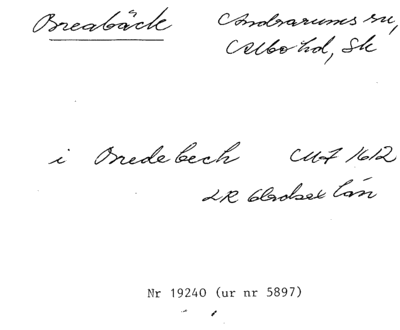 Breabäck Andrarums sn,
Albo hd, Sk
i Bredebech 1612
LR län
Nr 19240 (ur nr 5897)